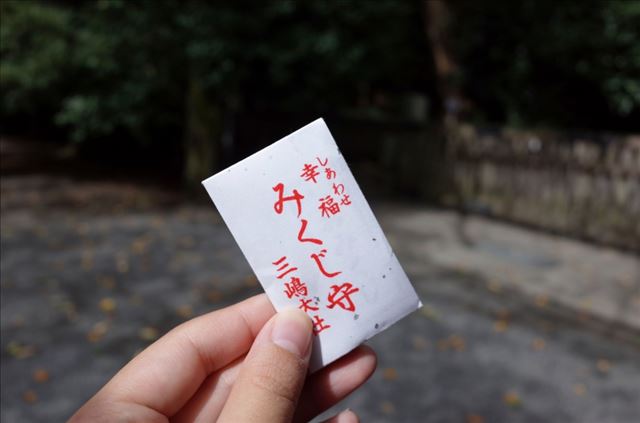 しあわせ
幸福
みくじ守
三嶋大社